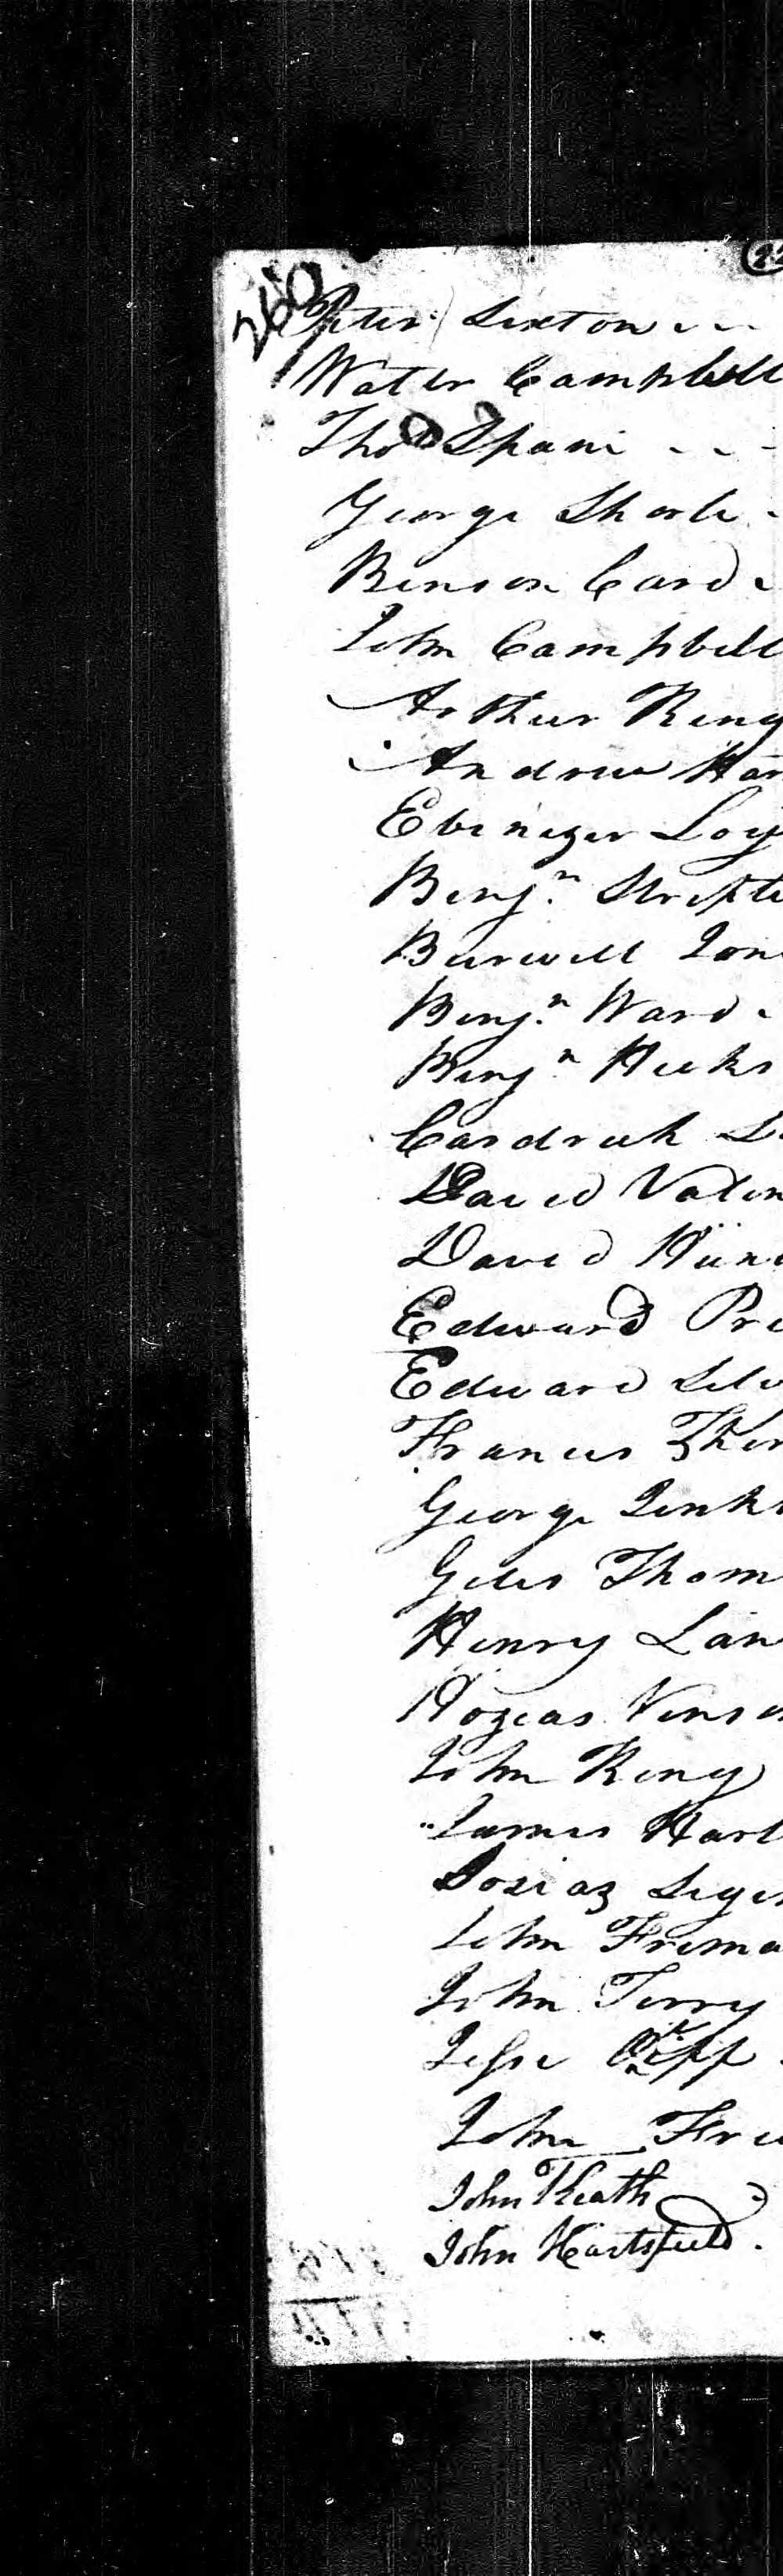 260
Peter Sexton
Water Campbell
Tho.s Spani
George Shorte
Benson Card
John Campbell
Arthur King
Andrew Har
Ebenezer Loy
Benj.n Stripte
Burwell Jon
Benj.n Ward
Benj.n Hicks
David Valen
David Hun
Edward Pri
Edward Silv
Francis Ther
George Jenk
Giles Thom
Henry Lan
Hozeas Vins
John King
James Hart
Joziaz Sige
John Frema
John Terry
Jesse
John Fre
John Heath
John Hartsfield.